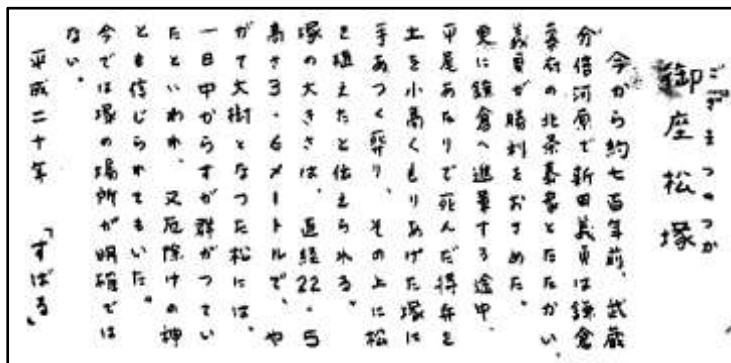 ござまつのつか
御座松塚
今から約七百年前、武蔵
分倍河原で新田義貞は鎌倉
幕府の北条泰家とたたかい、
義貞が勝利をおさめた。
更に鎌倉へ進軍する途中、
平尾あたりで死んだ将兵を
土を小高くもりあげた塚に
手あつく葬り、その上に松
を植えたと伝えられる。
塚の大きさは、直経22.5
高さ3.6メートルで、や
がて大樹となった松には、
一日中からすが群がってい
たといわれ、又厄除けの神
とも信じられてもいた。
今では塚の場所が明確では
ない。
平成二十年 「すばる」